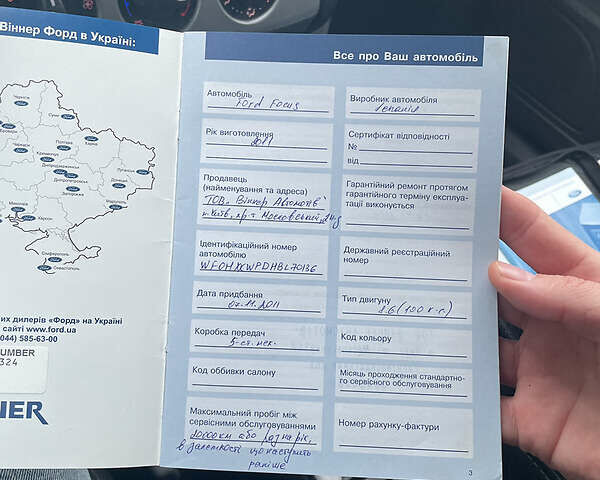 Віннер Форд в Україні:
Чернігів
Суми
Полтава
Харків
Кременчук
Дніпропетровськ
Донецьк
Запоріжжя
Миколаїв
Херсон
Сімферополь
Севастополь
их дилерів «Форд» на Україні
сайті www.ford.ua
(044) 585-63-00
UMBER
324
NER
Все про Ваш автомобіль
Автомобіль
Ford Focus
Виробник автомобіля
Іспанія
Рік виготовлення
2011
Сертифікат відповідності
№
від
Продавець
(найменування та адреса)
ТОВ „Віннер Автомотів"
м. Київ, пр-т Московський, 24д
Гарантійний ремонт протягом
гарантійного терміну експлуа-
тації виконується
Ідентифікаційний номер
автомобілю
WF0HXXWPDHBL70136
Державний реєстраційний
номер
Дата придбання
07.11.2011
Тип двигуну
1.6 (100 к.с.)
Коробка передач
5-ст. мех.
Код кольору
Код оббивки салону
Місяць проходження стандартно-
го сервісного обслуговування
Максимальний пробіг між
сервісними обслуговуваннями
20000 км або раз на рік,
в залежності що наступить
раніше
Номер рахунку-фактури
3